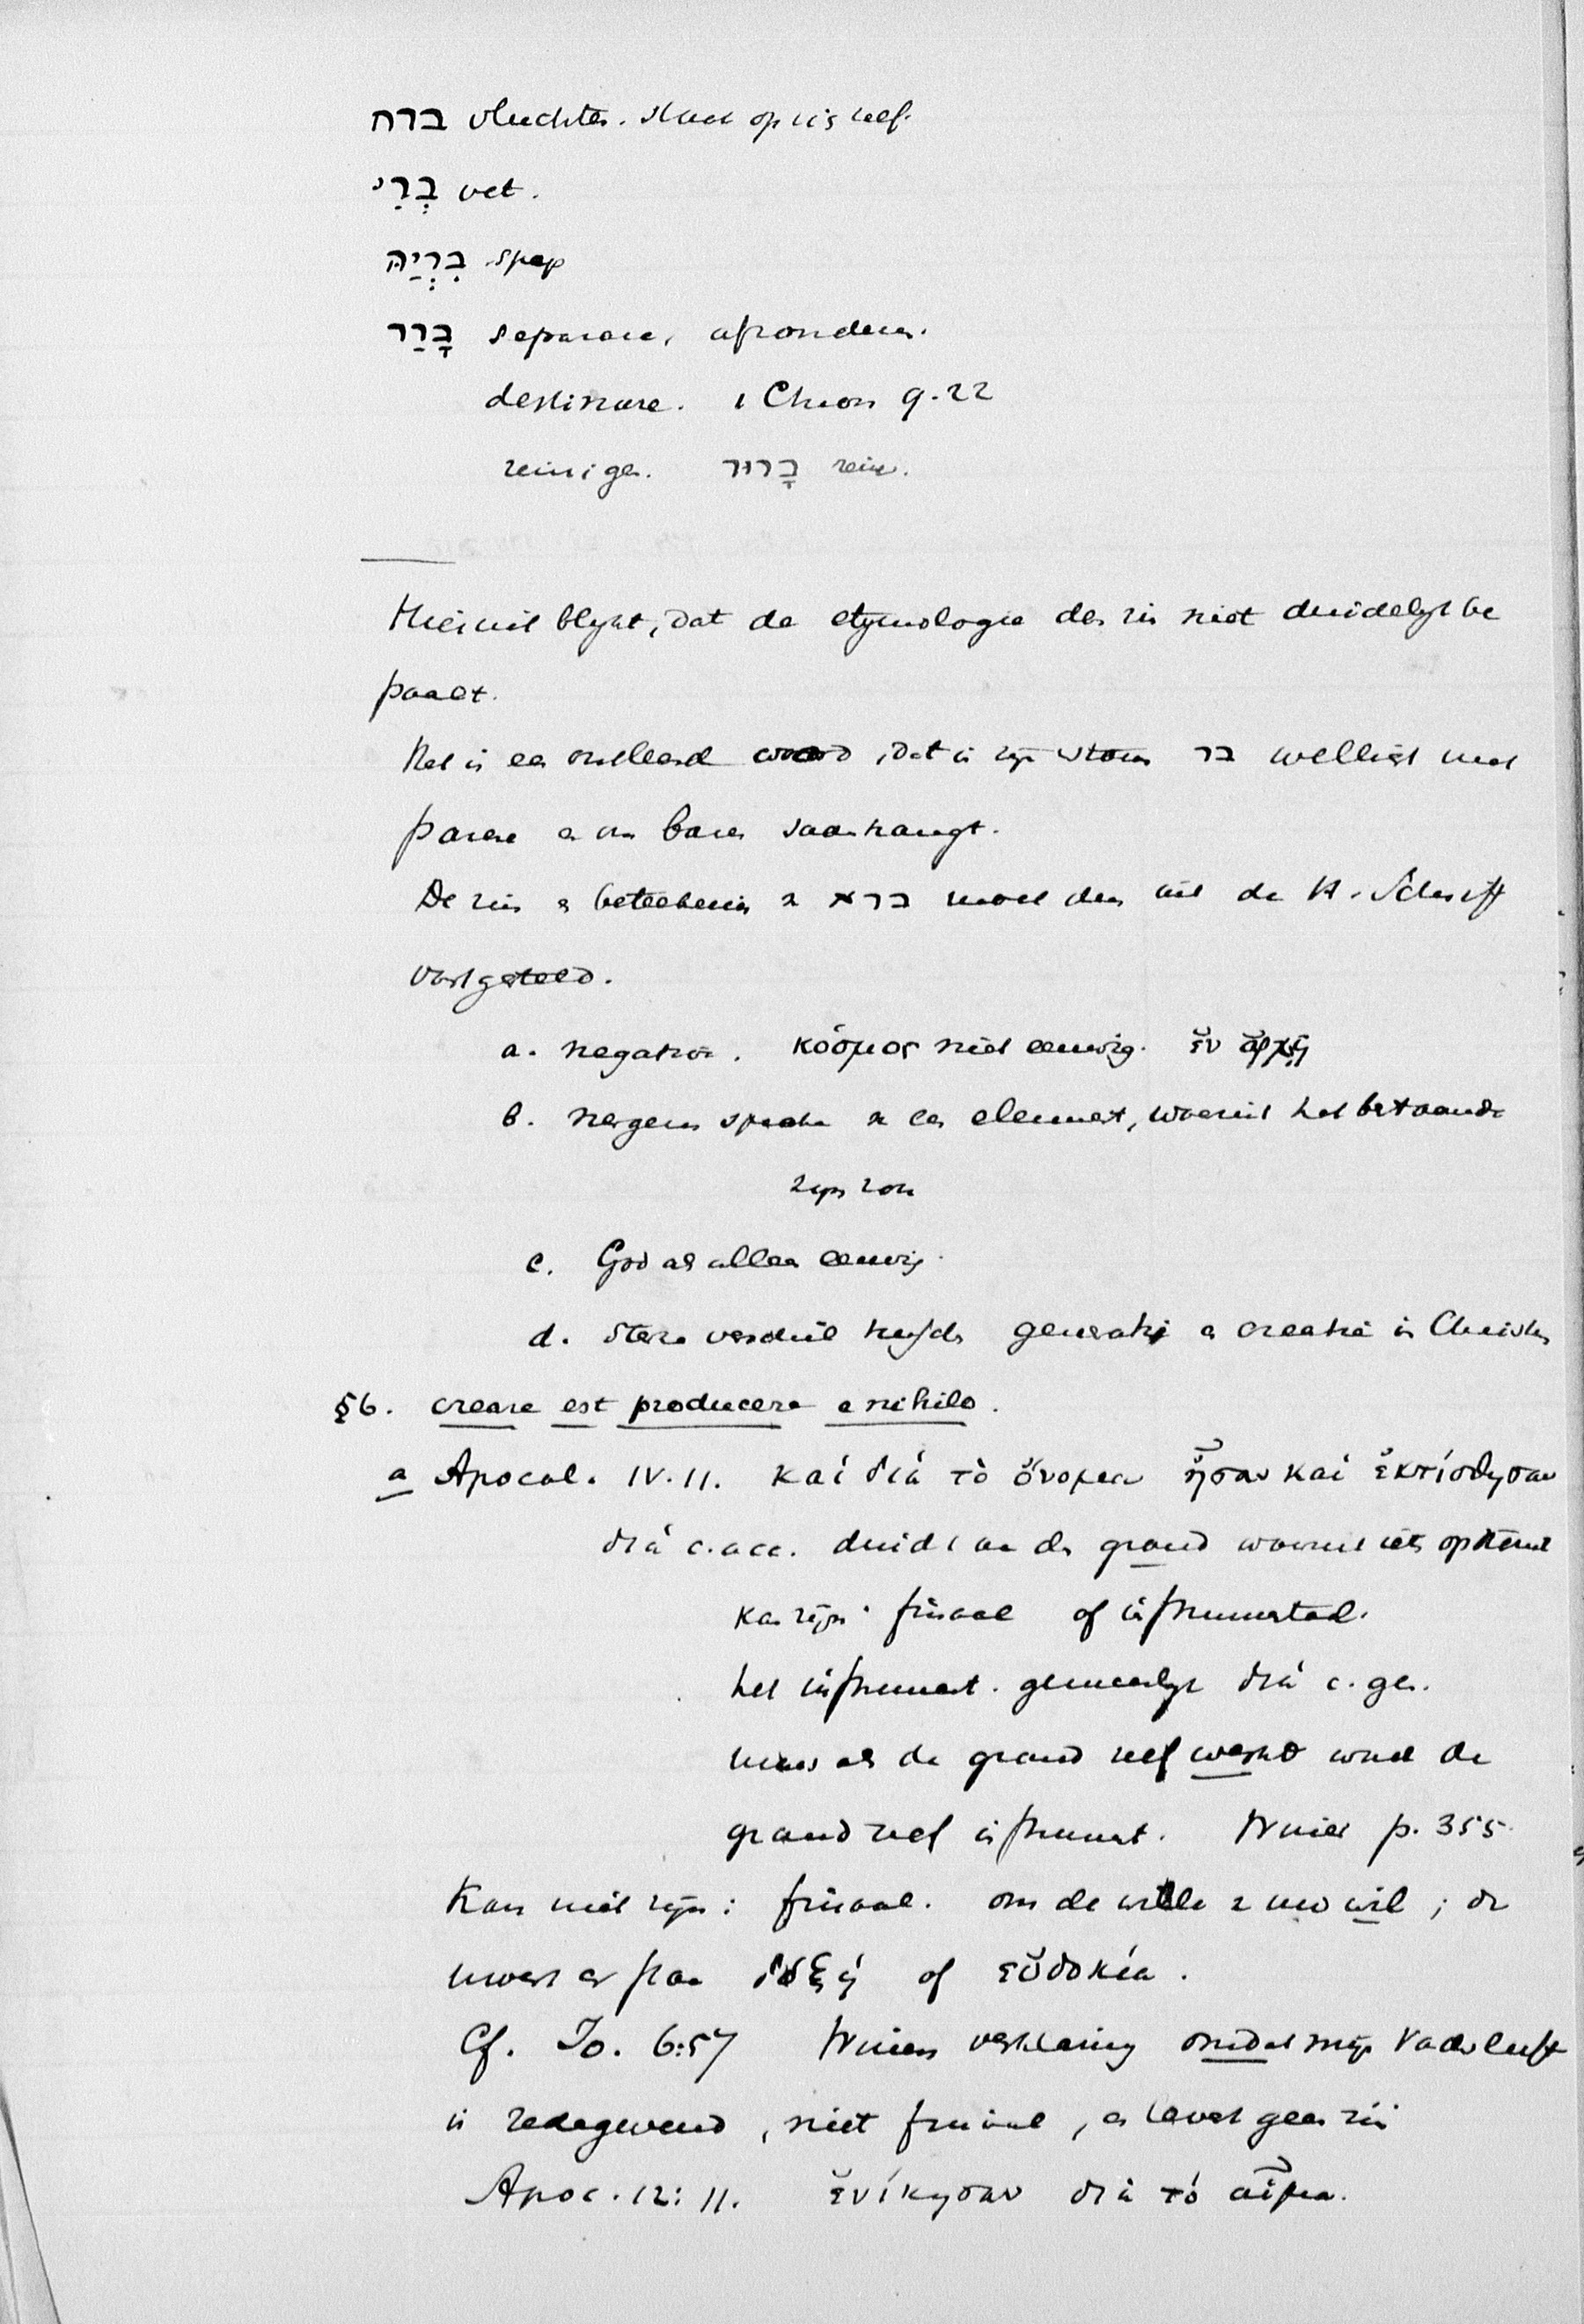 ברח vluchten. staat op zich zelf.
בְּרִי vet.
בִּרְיָה spijs
בָּרַר separare, afzonderen.
destinare. 1 Chron 9.22
reinigen. בָּרוּר rein.
Hieruit blijkt, dat de etymologie den zin niet duidelijk be
paalt.
Het is een ontleend woord, dat in zijn stam בר wellicht met
parere en ons baren saamhangt.
De zin en beteekenis v ברא moet dus uit de H. Schrift
vastgesteld.
a. negatie. κόσμος niet eeuwig. ἐν ἀρχῇ
b. nergens sprake v een element, waaruit het bestaande
zijn zou
c. God als alleen eeuwig.
d. Steeds verschil tusschen generatie en creatie in Christus
§6. creare est producere e nihilo.
a Apocal. IV.11. καί διά τὸ ὄνομα ἦσαν καί ἐκτίσθησαν
διά c. acc. duidt aan den grond waaruit iets opkomt
kan zijn: finaal of instrumentaal.
het instrument. gemeenlijk διά c. gen.
maar als de grond zelf werkt wordt de
grond zelf instrument. Winer p. 355
Kan niet zijn: finaal. om de wille v uw wil; dr
moest er staan δόξῃ of εὐδοκία.
Cf. Jo. 6:57 Winers verklaring omdat mijn Vader leeft
is redegevend, niet finaal, en levert geen zin
Apoc. 12:11. ἐνίκησαν διὰ τό αἷμα.